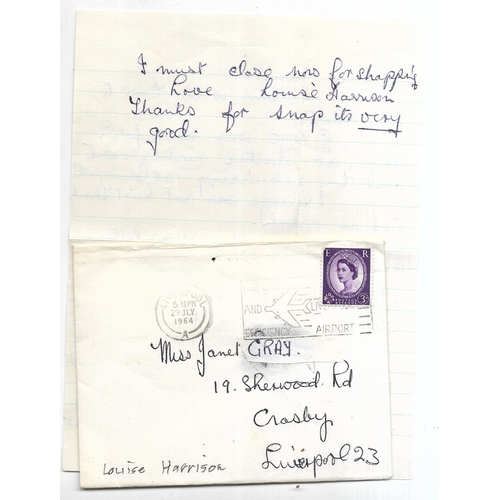 I must close now for shopping
Love Louise Harrison
Thanks for snap its very
good.
E R
3D
LIVERPOOL
5 PM
29 JLY
1964
A
AND LIVERPOOL
EFFICIENCY AIRPORT
Miss Janet GRAY.
19. Sherwood Rd
Crosby
Liverpool 23
Louise Harrison